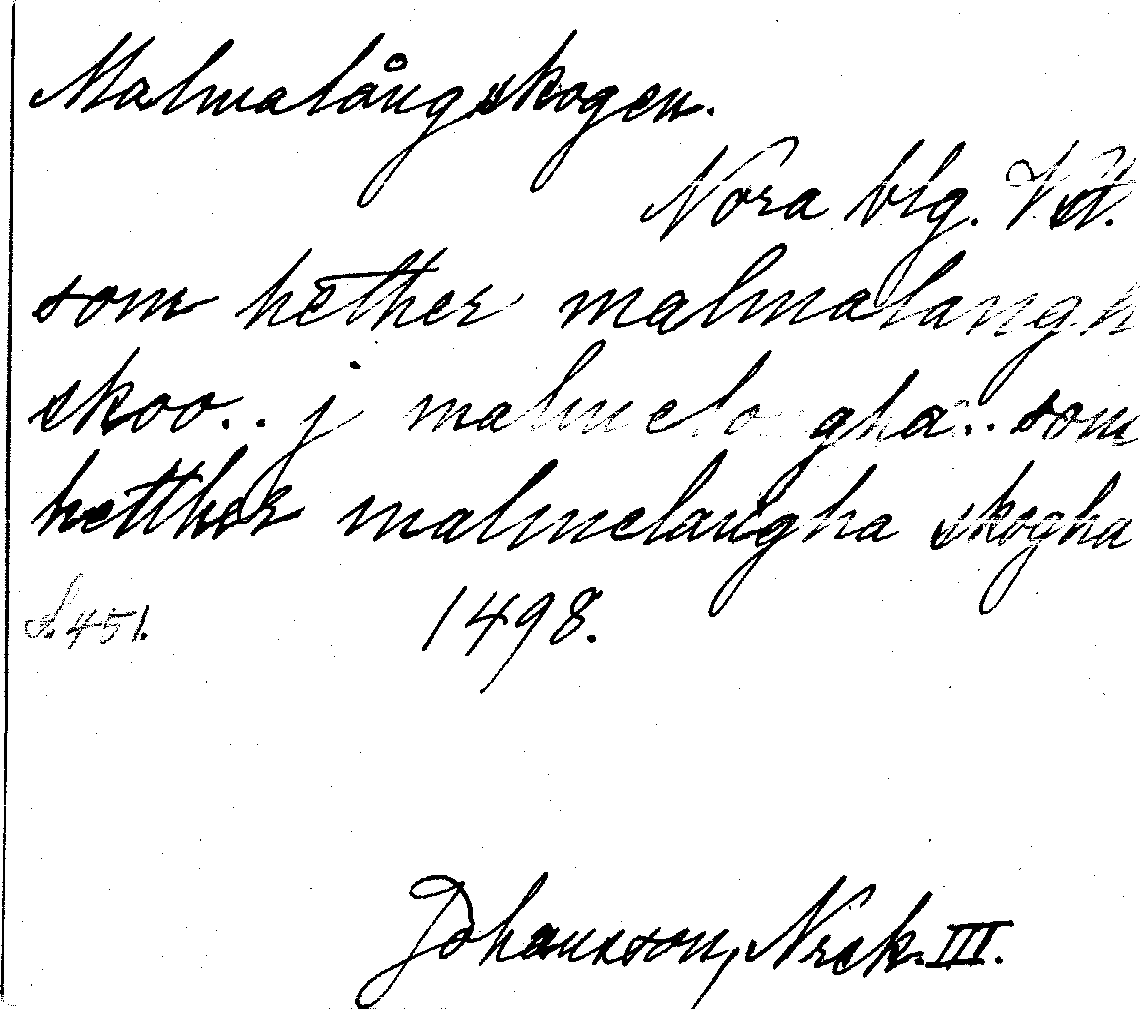 Malmalångskogen.
Nora blg. Vstm.
som hether malmalangh
skoo.. j malmelongha.. som
hetther malmelangha skogha
S. 451. 1498.
Johansson, Nrck. III.